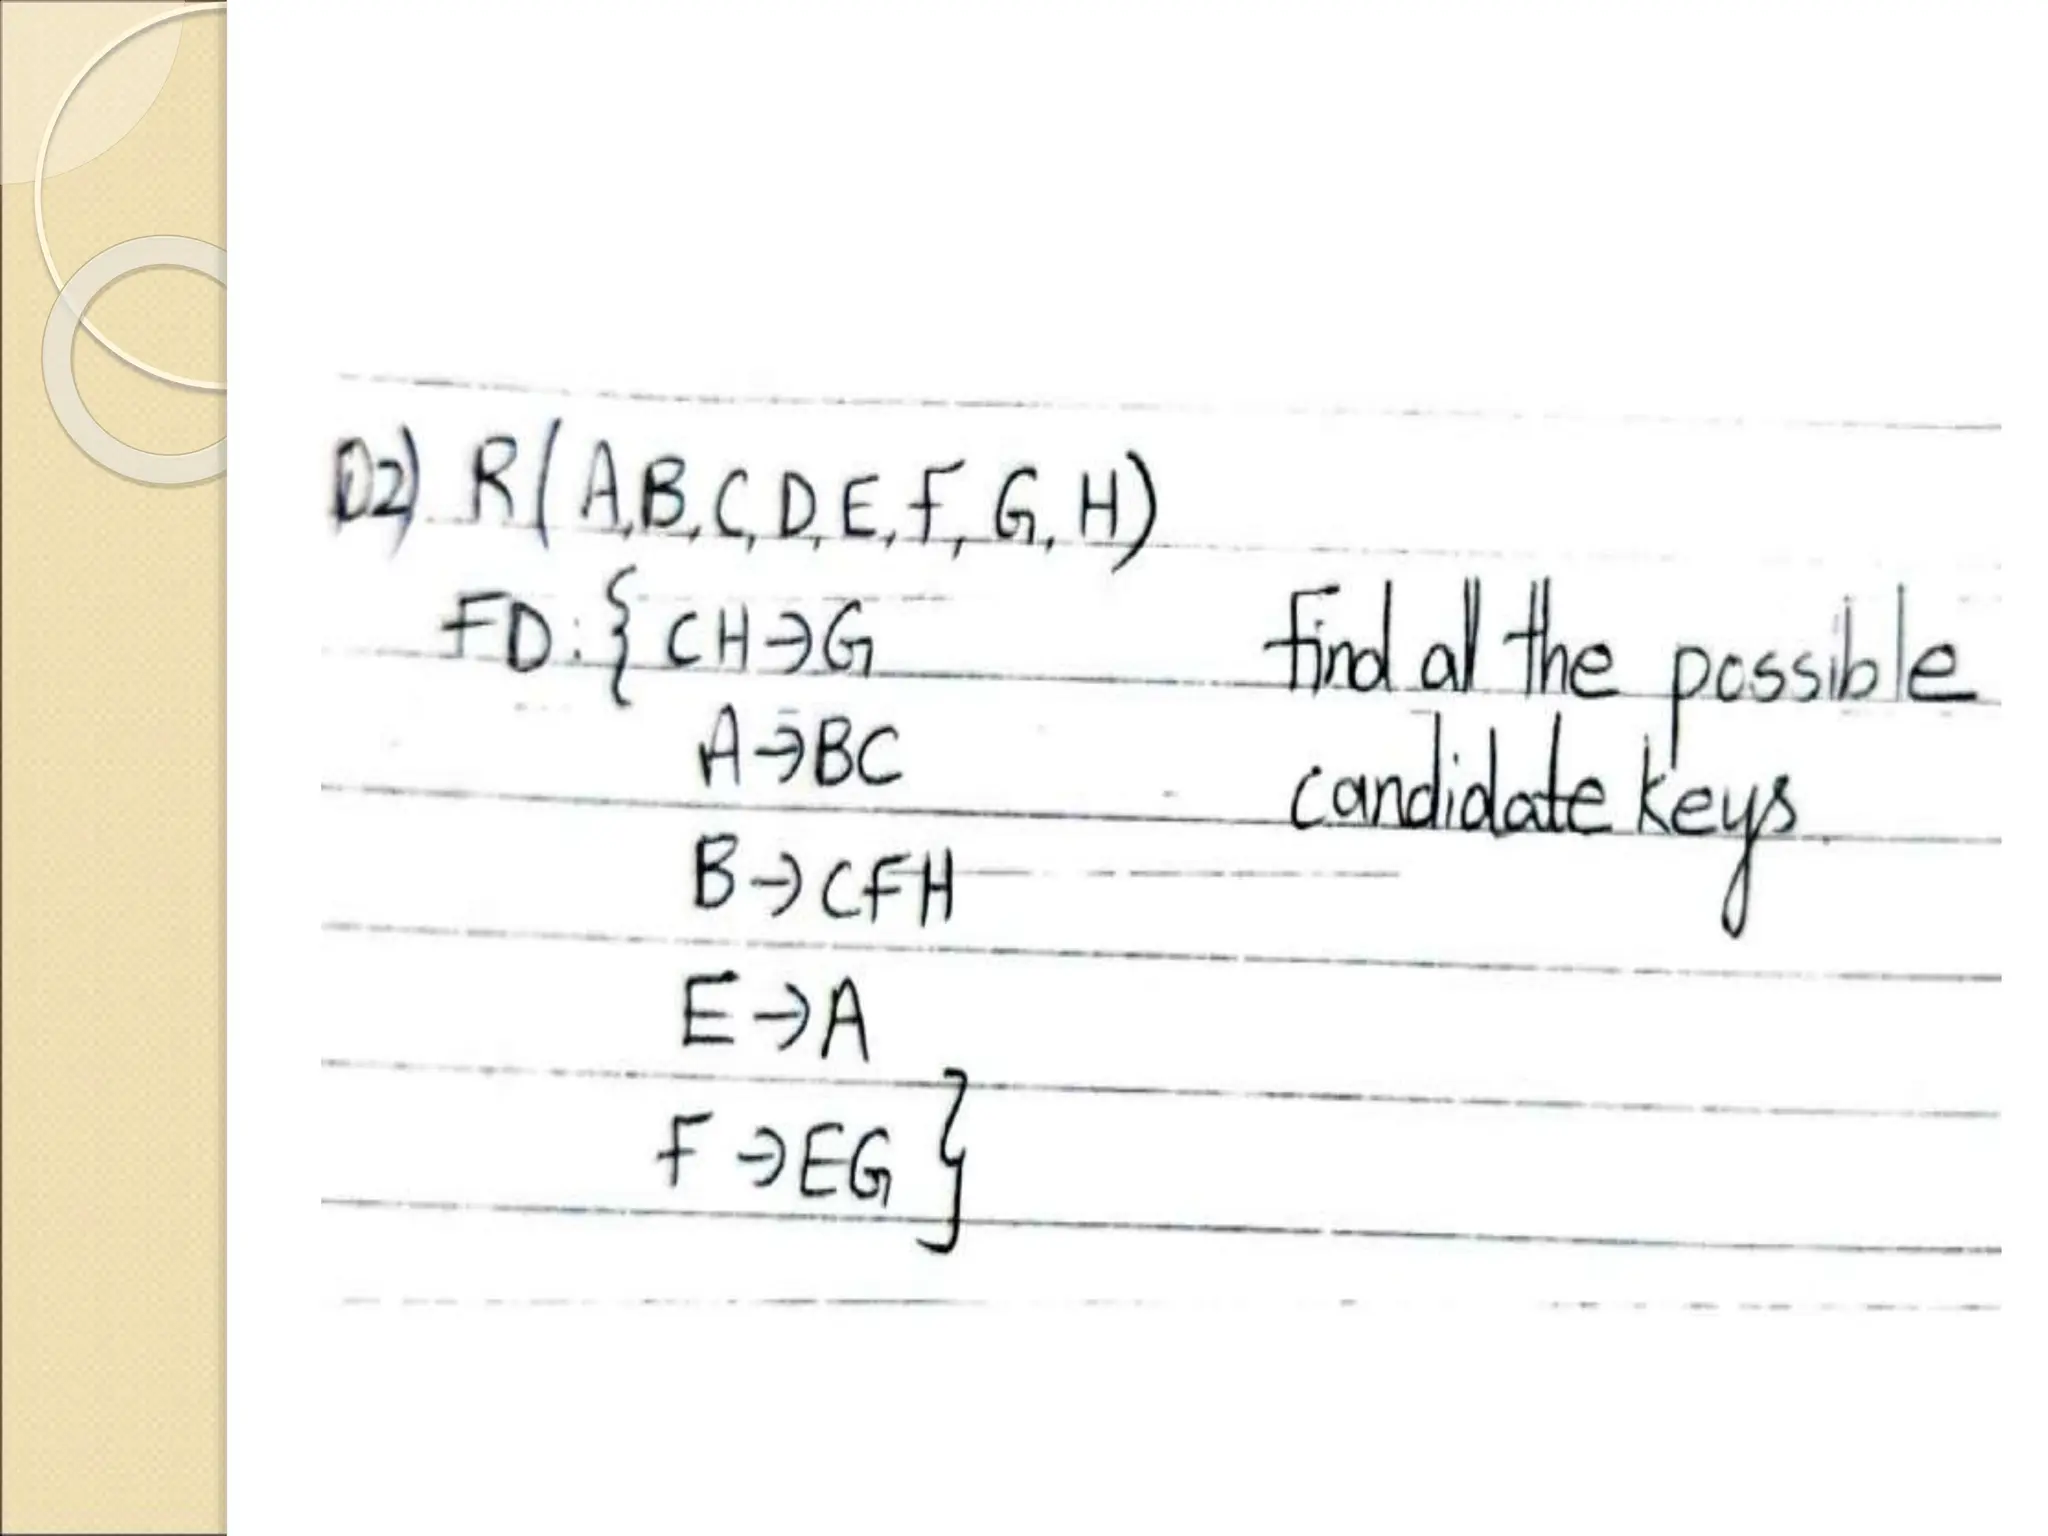 Q2) R(A,B,C,D,E,F,G,H)
FD:{CH→G
A→BC
B→CFH
E→A
F→EG}
find all the possible
candidate keys.